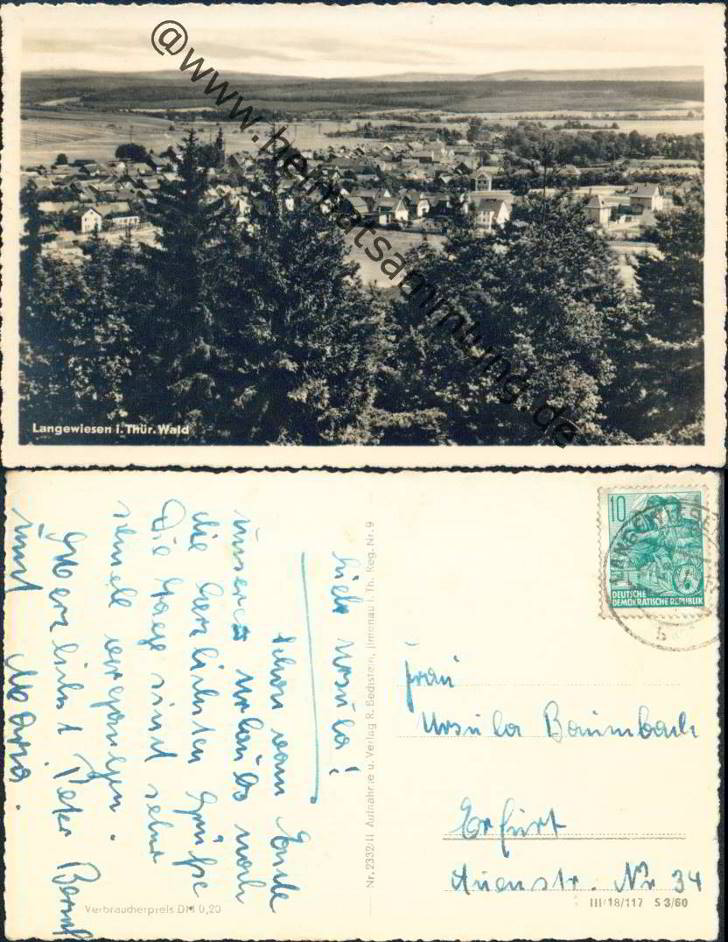 @www.heimatsammlung.de
Langewiesen i. Thür. Wald
Liebe Ursula!
Schon vom Ende
unseres Urlaubs noch
die herzlichsten Grüße
Die Tage sind sehr
schnell vergangen.
Herzlichst Peter Bernd
und Maria.
Nr. 2332/II Aufnahme u. Verlag R. Bechstein, Ilmenau i. Th. Reg. Nr. 9
Verbraucherpreis DM 0,20
10
DEUTSCHE
DEMOKRATISCHE REPUBLIK
LANGEWIESEN
Frau
Ursula Baumbach
Erfurt
Auenstr. Nr 34
III/18/117 S 3/60